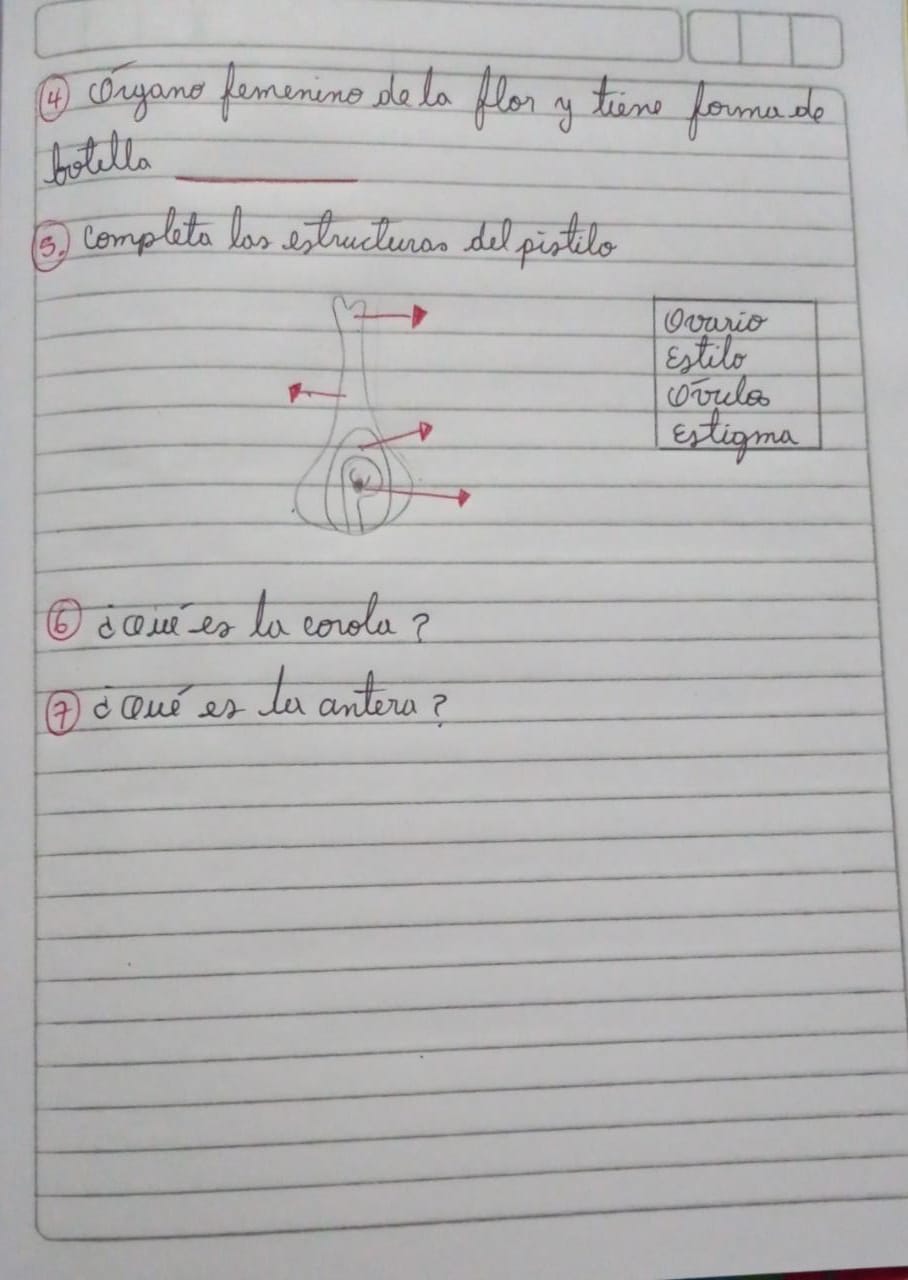 ④ Órgano femenino de la flor y tiene forma de
botella ________
⑤. completa las estructuras del pistilo
Ovario
Estilo
Óvulos
Estigma
⑥ ¿Qué es la corola?
⑦ ¿Qué es la antera?